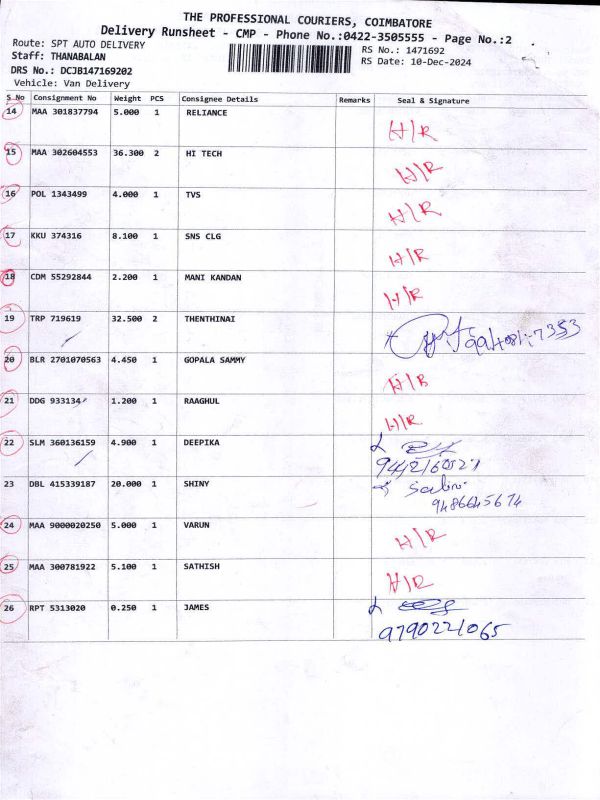 THE PROFESSIONAL COURIERS, COIMBATORE
Delivery Runsheet - CMP - Phone No.:0422-3505555 - Page No.:2
Route: SPT AUTO DELIVERY
RS No.: 1471692
Staff: THANABALAN
RS Date: 10-Dec-2024
DRS No.: DCJB147169202
Vehicle: Van Delivery
S No Consignment No Weight PCS Consignee Details Remarks Seal & Signature
14 MAA 301837794 5.000 1 RELIANCE H/R
15 MAA 302604553 36.300 2 HI TECH H/R
16 POL 1343499 4.000 1 TVS H/R
17 KKU 374316 8.100 1 SNS CLG H/R
18 CDM 55292844 2.200 1 MANI KANDAN H/R
19 TRP 719619 32.500 2 THENTHINAI
20 BLR 2701070563 4.450 1 GOPALA SAMMY H/R
21 DDG 933134 1.200 1 RAAGHUL H/R
22 SLM 360136159 4.900 1 DEEPIKA
23 DBL 415339187 20.000 1 SHINY
9486645674
24 MAA 9000020250 5.000 1 VARUN H/R
25 MAA 300781922 5.100 1 SATHISH H/R
26 RPT 5313020 0.250 1 JAMES
9790221065